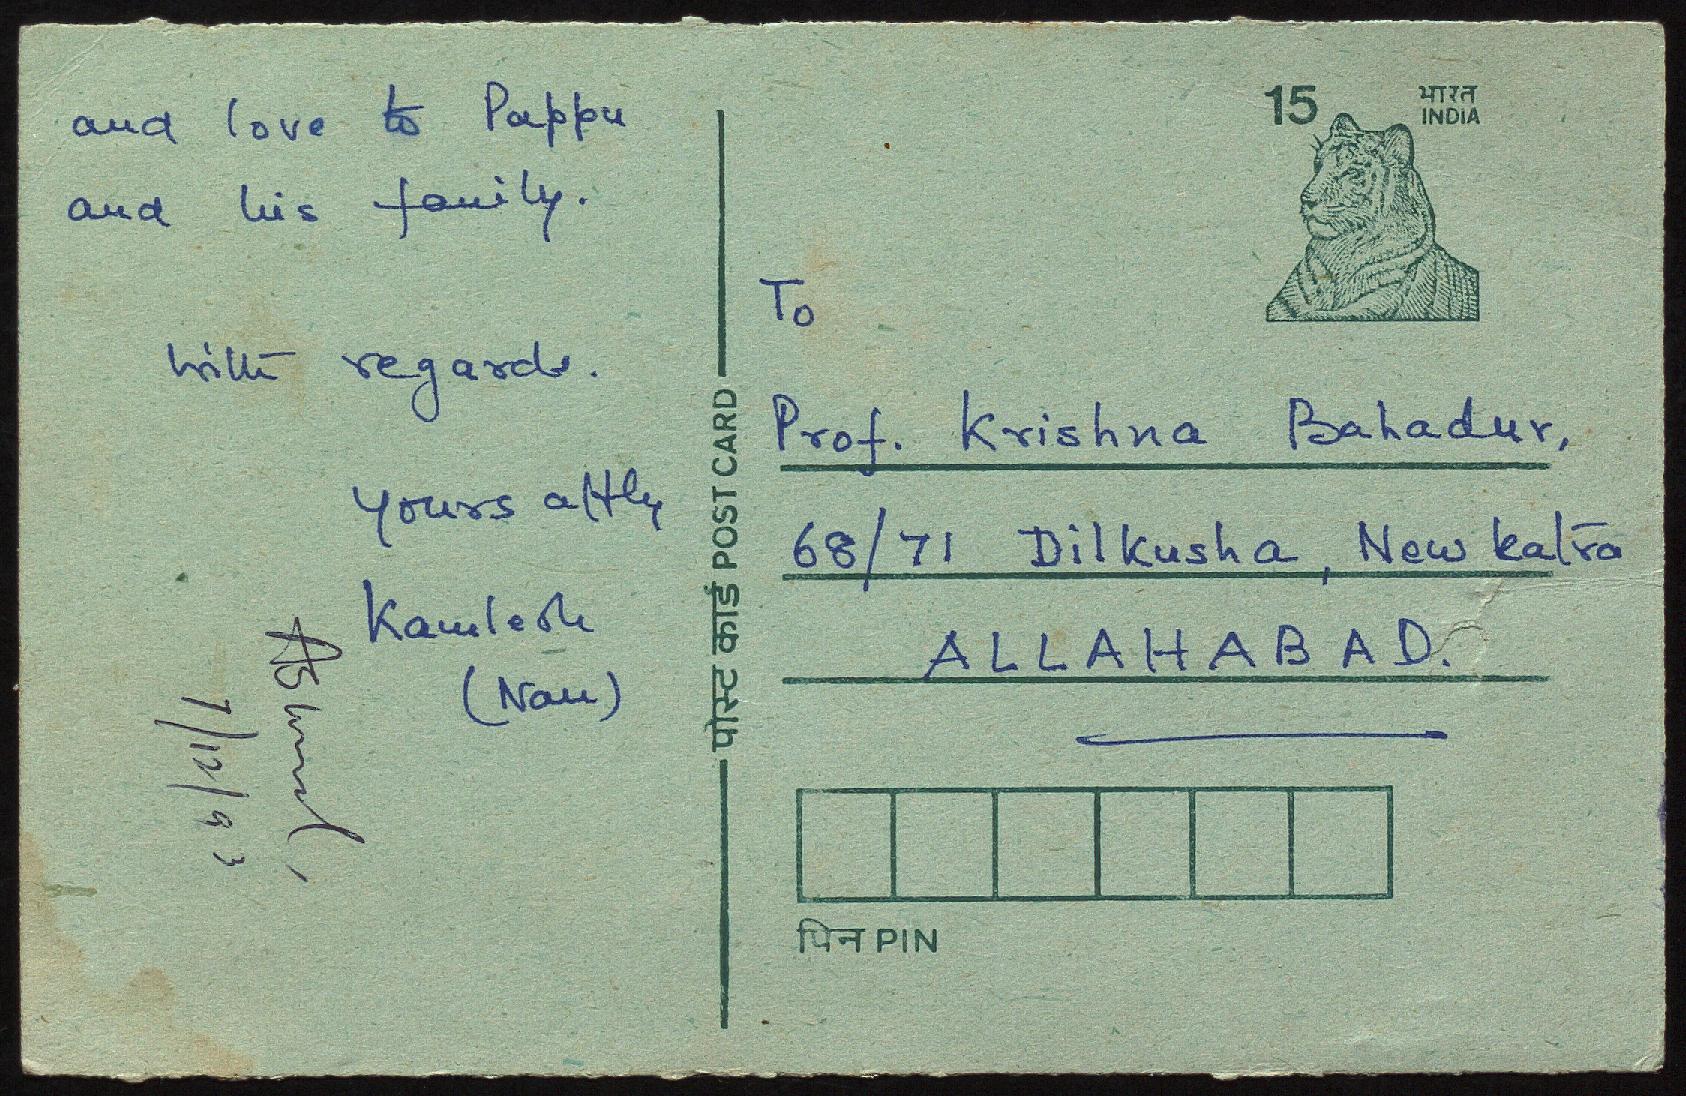 and love to Pappu
and his family.
with regards.
yours afftly
Kamlesh
(Nau)
7/12/93
पोस्ट कार्ड POST CARD
15
भारत
INDIA
To
Prof. Krishna Bahadur,
68/71 Dilkusha, New Katra
ALLAHABAD.
पिन PIN